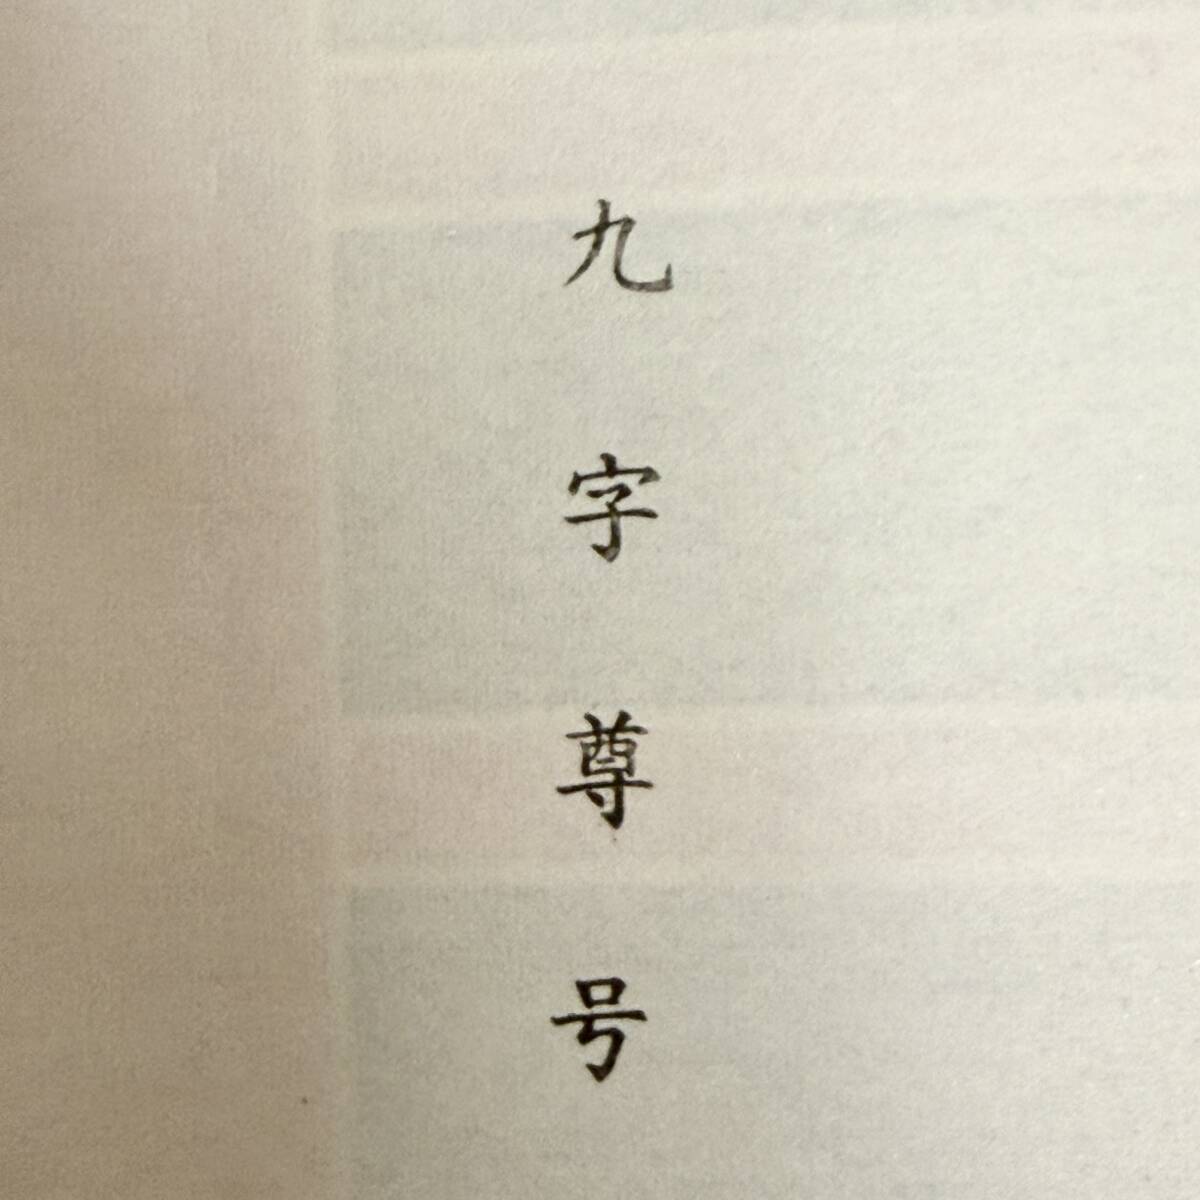 九字尊号